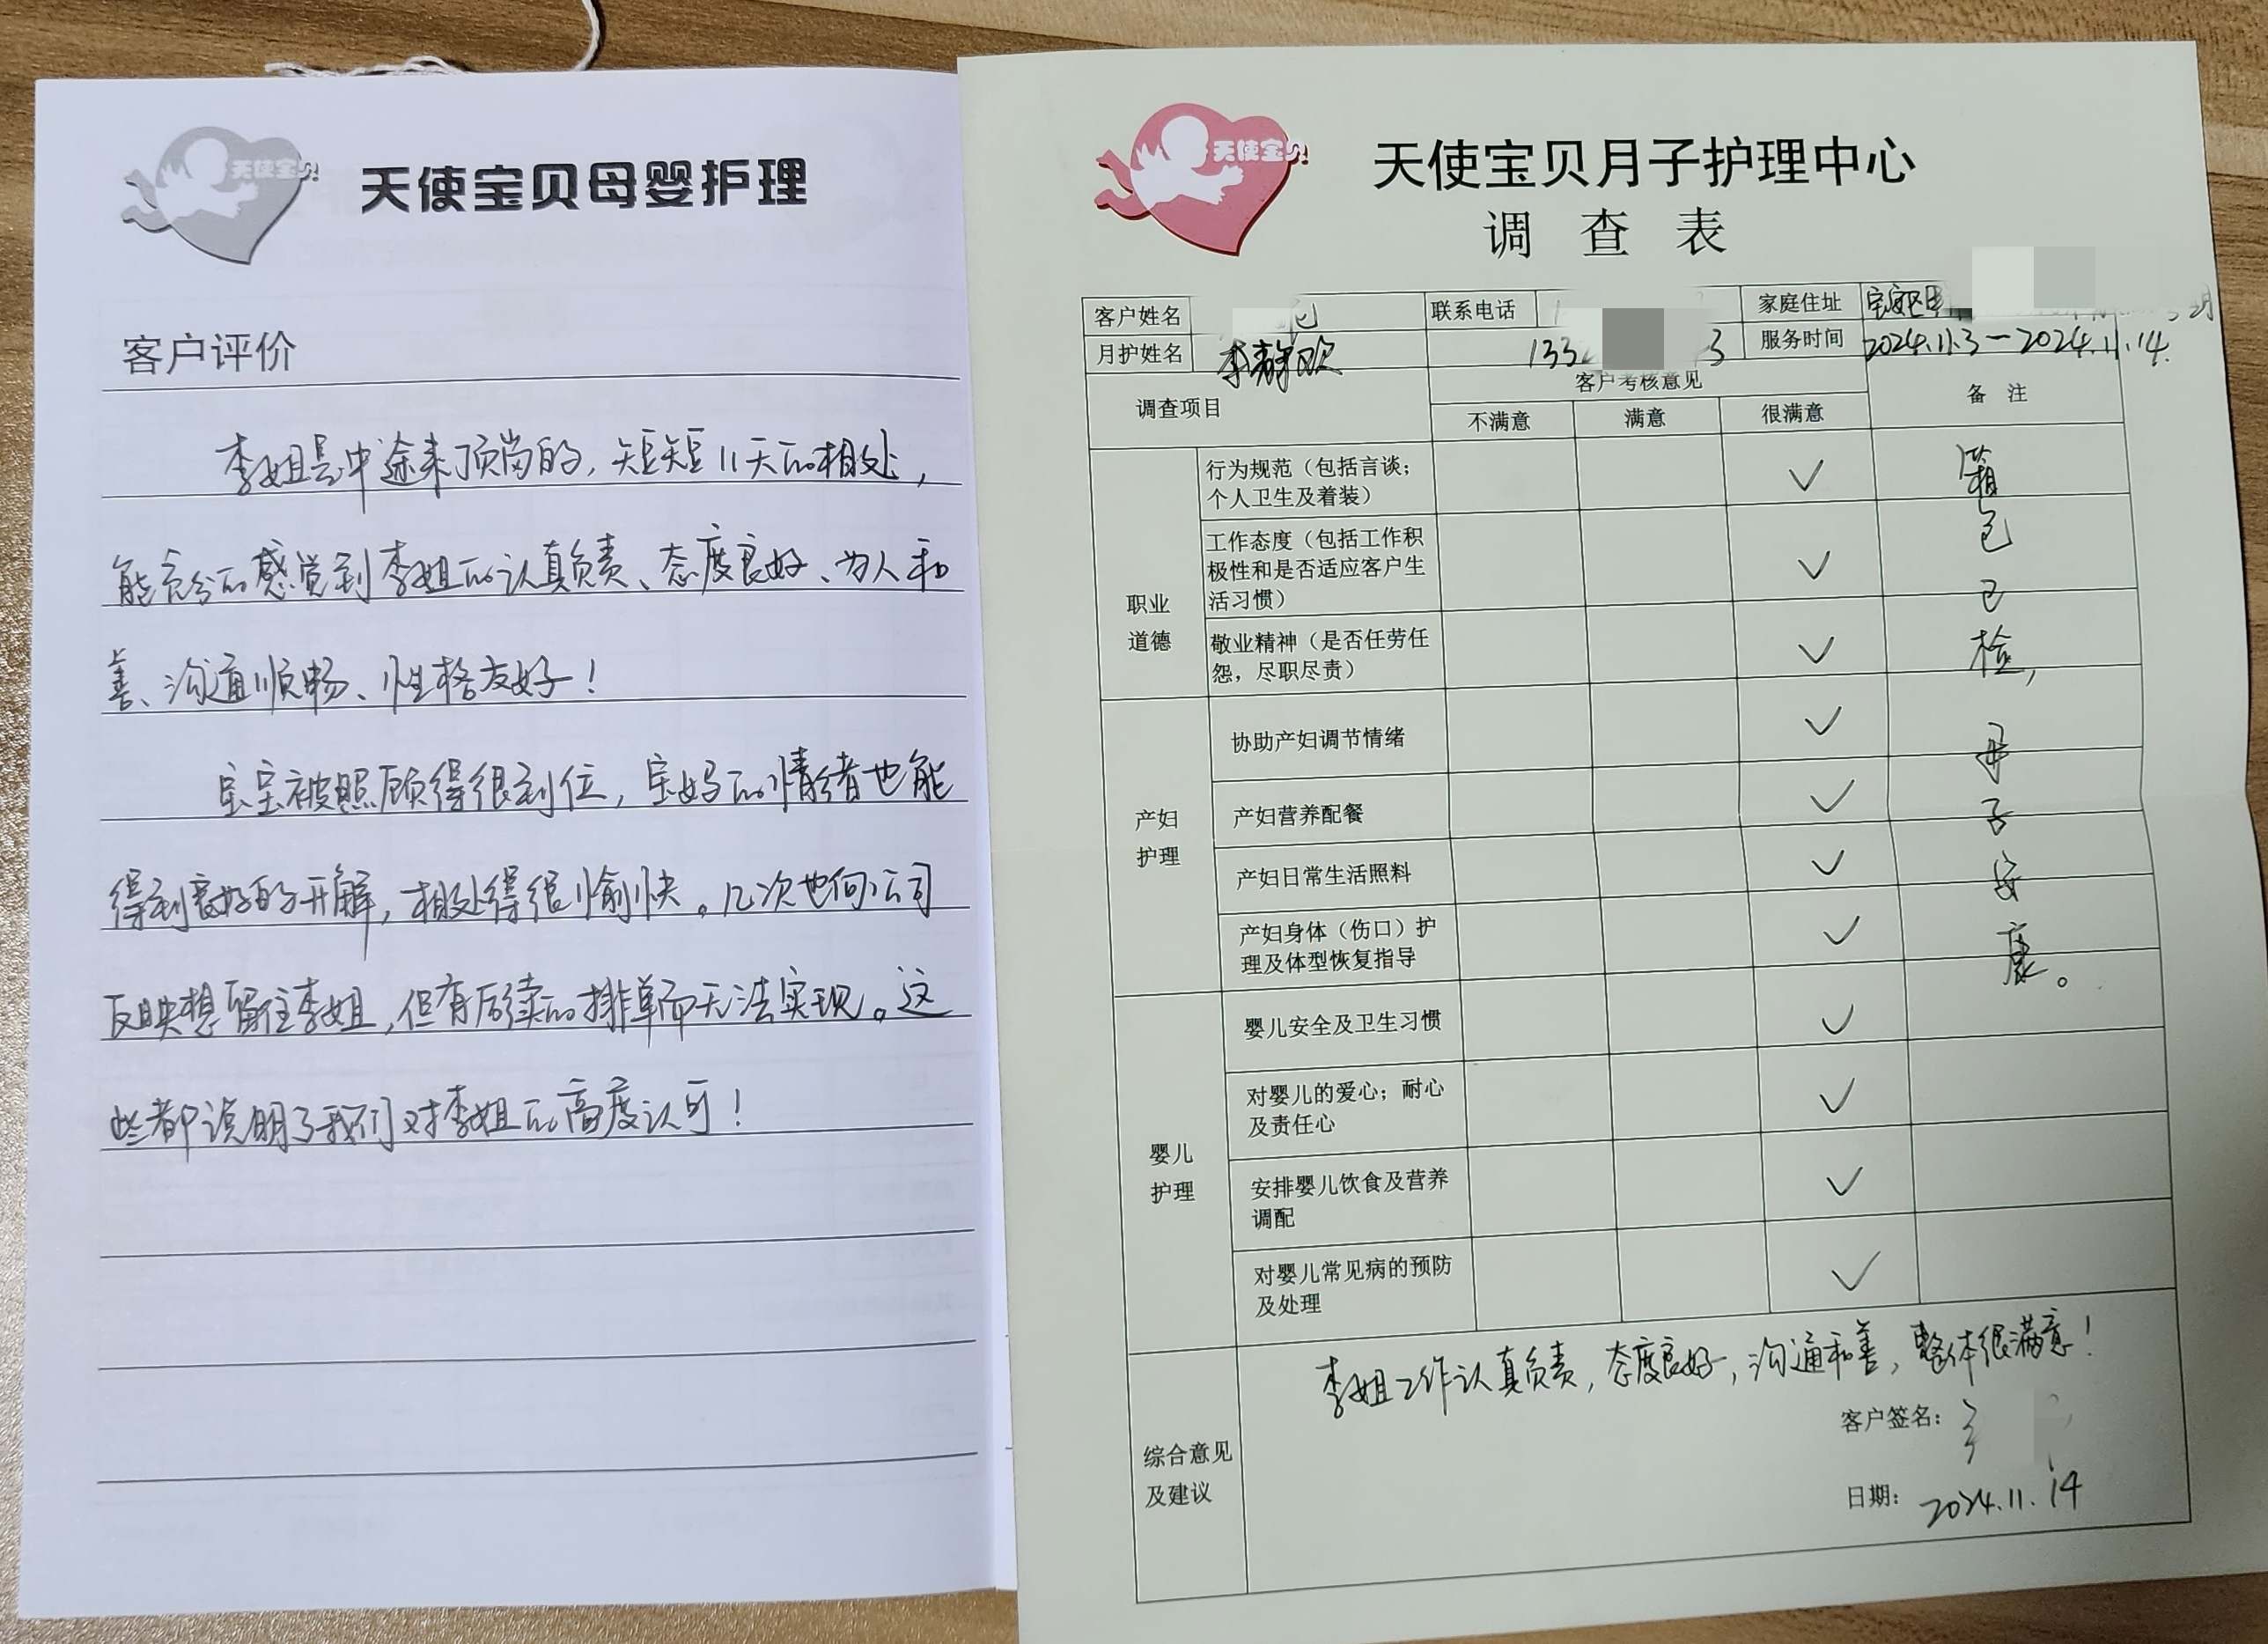 天使宝贝
天使宝贝母婴护理
客户评价
李姐是中途来顶岗的，短短11天的相处，
能充分的感觉到李姐的认真负责、态度良好、为人和
善、沟通顺畅、性格友好！
宝宝被照顾得很到位，宝妈的情绪也能
得到良好的开解，相处得很愉快。几次也向公司
反映想留住李姐，但有后续的排单而无法实现。这
些都说明了我们对李姐的高度认可！
天使宝贝
天使宝贝月子护理中心
调 查 表
客户姓名 联系电话 家庭住址 宝安区
月护姓名 李静欢 133 3 服务时间 2024.11.3－2024.11.14.
调查项目 客户考核意见 备 注
不满意 满意 很满意
职业
道德
行为规范（包括言谈；
个人卫生及着装） ✓
工作态度（包括工作积
极性和是否适应客户生
活习惯） ✓
敬业精神（是否任劳任
怨，尽职尽责） ✓
产妇
护理
协助产妇调节情绪 ✓
产妇营养配餐 ✓
产妇日常生活照料 ✓
产妇身体（伤口）护
理及体型恢复指导 ✓
婴儿
护理
婴儿安全及卫生习惯 ✓
对婴儿的爱心；耐心
及责任心 ✓
安排婴儿饮食及营养
调配 ✓
对婴儿常见病的预防
及处理 ✓
箱包已检，母子安康。
综合意见
及建议
李姐工作认真负责，态度良好，沟通和善，整体很满意！
客户签名：
日期： 2024.11.14